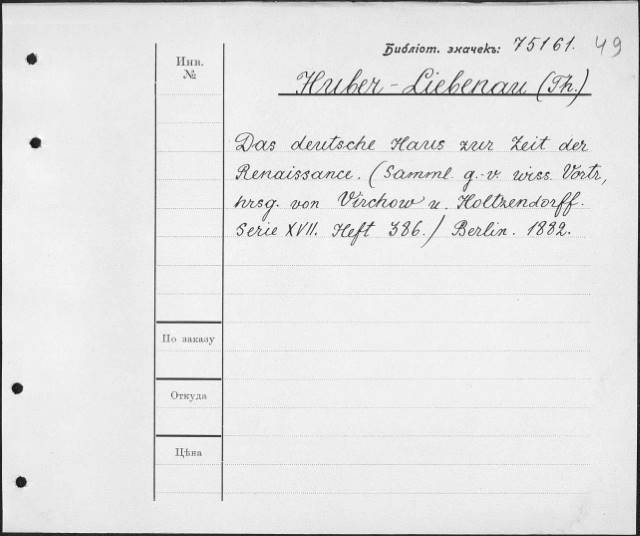 Библіот. значекъ: 75161. 49
Инв.
№
Huber-Liebenau (Th.)
Das deutsche Haus zur Zeit der
Renaissance. (Samml. g.-v. wiss. Vortr,
hrsg. von Virchow u. Holtzendorff.
Serie XVII. Heft 386.) Berlin. 1882.
По заказу
Откуда
Цѣна